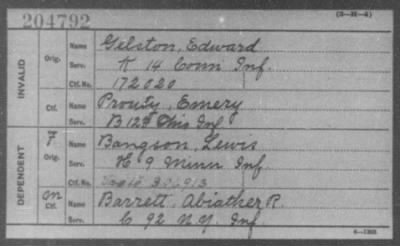 204792
(3—H—4)
INVALID
Orig. Name Gelston, Edward
Serv. K 14 Conn Inf.
Ctf. No. 172020
Ctf. Name Prouty, Emery
Serv. B 123 Ohio Inf
DEPENDENT
F Orig. Name Bangson, Lewis
Serv. H 9 Minn Inf.
Ctf. No.
on Ctf. Name Barrett, Abiather R.
Serv. C 92 N.Y. Inf